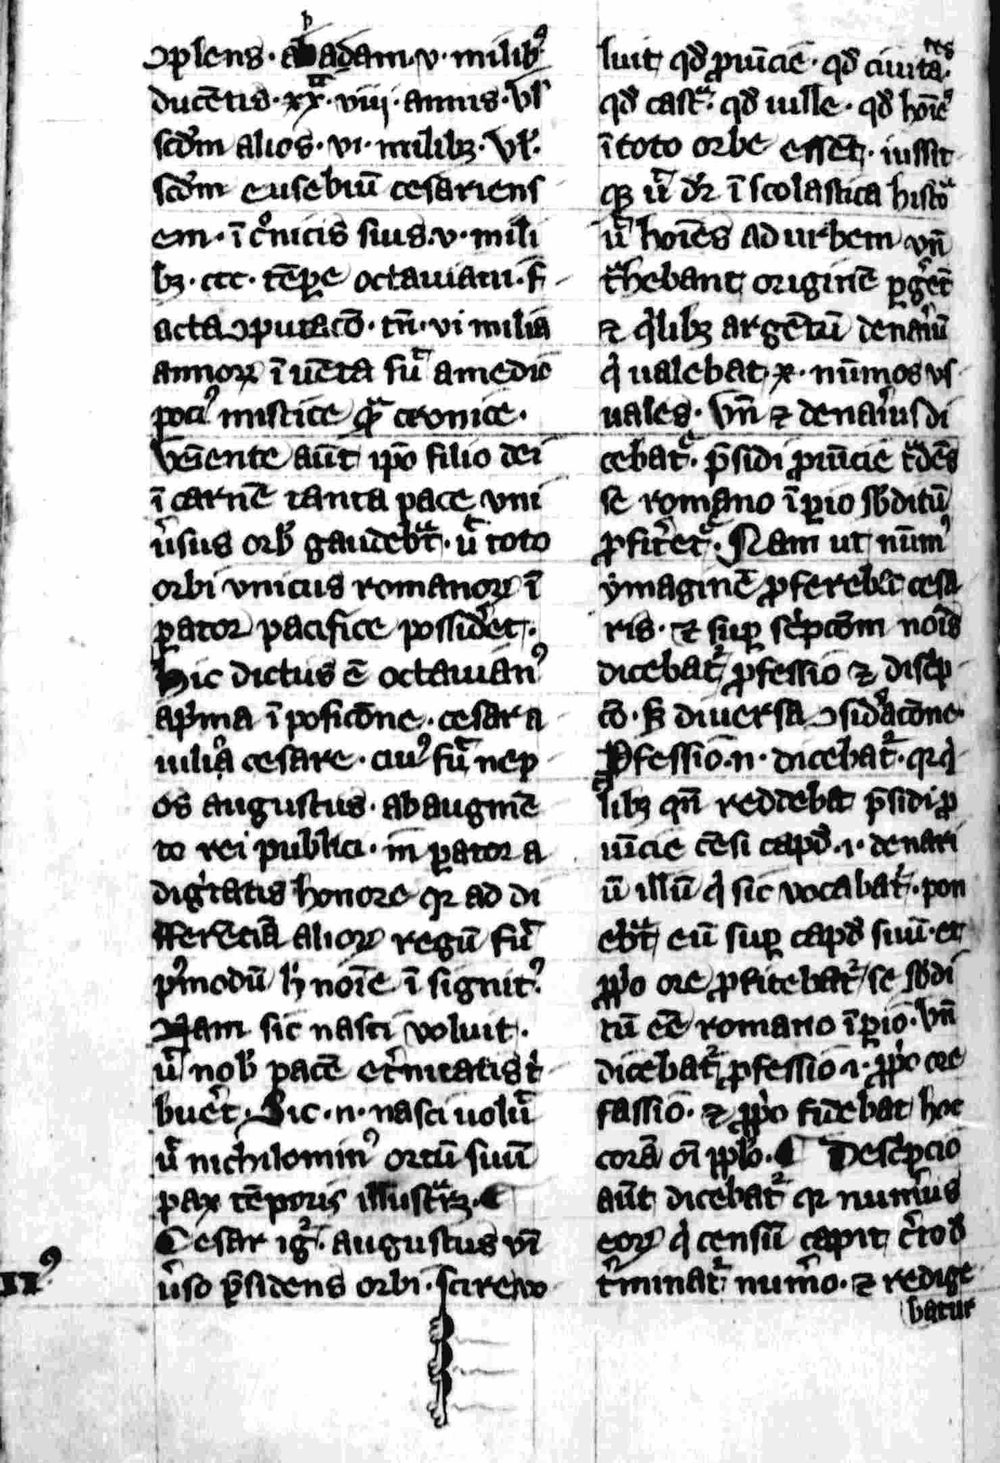 ↄplens · ab adam · v · milibꝰ
ducētis · xx · viij · annis · vl̉
scd̄m alios · vi · milibꝫ · vl̉ ·
scd̄m eusebiū cesariens
em · ī c̉nicis suis · v · mili
bꝫ · ccc · tēꝑe octauiani · f
acta ↄputacō · tn̄ · vi milia
annoꝝ ī uēta
mistice cronice ·
Veniente aūt ip̄o filio dei
ī carnē tanta pace vni
ūsus orb̉ gaudebat · ut toto
orbi vnicus romanoꝝ ī
ꝑator pacifice possideret ·
Hic dictus ē octauianꝰ
a p̉ma ī posicōne · cesar a
iulio cesare · cuiꝰ nep
os augustus · ab augmē
to rei publici · im ꝑator a
dig̉tatis honore ad di
fferēciā alioꝝ regū
p̉modū noīe ī signitꝰ
Nam sic nasci voluit ·
nob̉ pacē et̉nitatis t̉
bueret · Sic · n · nasci uolu
nichilominꝰ ortū suū
pax tēporis illustraret ·
Cesar igr̄ · augustus vni
ūso p̄sidens orbi · scire uo
IIꝰ
luit qd̄ ꝓuīcie · qd̄ ciuita
tes
qd̄ cast̉ · qd̄ uille · qd̄ hoīēs
ī toto orbe essēt · iussit
dr̄ ī scolastica histo
hoīes ad urbem vn̄
t̉hebant originē ꝑgerēt
⁊ q̉libꝫ argētū denariū
q̉ ualebat x · nūmos vs
uales · Vn̄ ⁊ denarius di
cebat̉ · p̄sidi ꝓuīcie t̉dēs
se romano īꝑio sb̄ditū
ꝓfiteret̉ · Nam ut nūmꝰ
ymaginē ꝓferebat cesa
ris · ⁊ suꝑ sc̉pcōm noīs
dicebat̉ ꝓfessio ⁊ disc̉p
cō · diuersa ↄsid̉acōne ·
Pfessio · n · dicebat̉ · q̉
libꝫ qn̄ reddebat p̄sidi ꝓ
uīcie cēsi capd̉ · i · denari
ū illū q̉ sic vocabat̉ · pon
ebat eū suꝑ capd̉ suū · et
ꝓp̉o ore ꝓfitebat̉ se sb̄di
tū eē romano īꝑio · Vn̄
dicebat̉ ꝓfessio · i · ꝓp̉o ore
fassio · ⁊ hoc
corā oī pplo · ¶ Desc̉pcio
aūt dicebat̉ num̉us
eoꝝ q̉ censū capit c̉to d
t̉minat̉ num̉o · ⁊ redige
batur